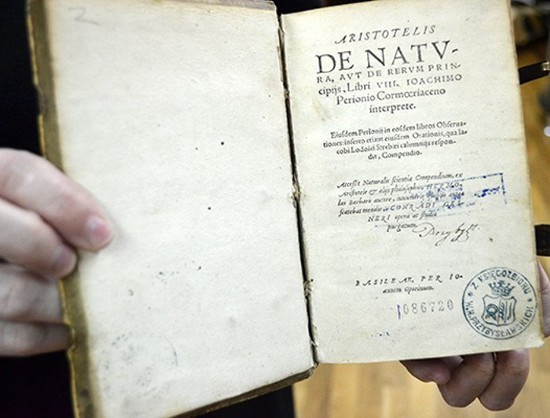 2
ARISTOTELIS
DE NATV-
RA, AVT DE RERVM PRIN-
cipijs, Libri VIII. IOACHIMO
Perionio Cormœriaceno
interprete.
Eiusdem Perionij in eosdem libros Obserua-
tiones: inserto etiam eiusdem Orationis, qua Ia-
cobi Lodoici Strebæi calumnijs respon-
dit, Compendio.
Accessit Naturalis scientiæ Compendium, ex
Aristotele & alijs philosophis, HERMO-
lao Barbaro autore,
CONRADI
NERI opera ac studio
purgatum.
BASILEAE, PER IO-
annem Oporinum.
1086720
Z KSIĘGOZBIORU
H.H. PRZYBYSŁAWSKICH